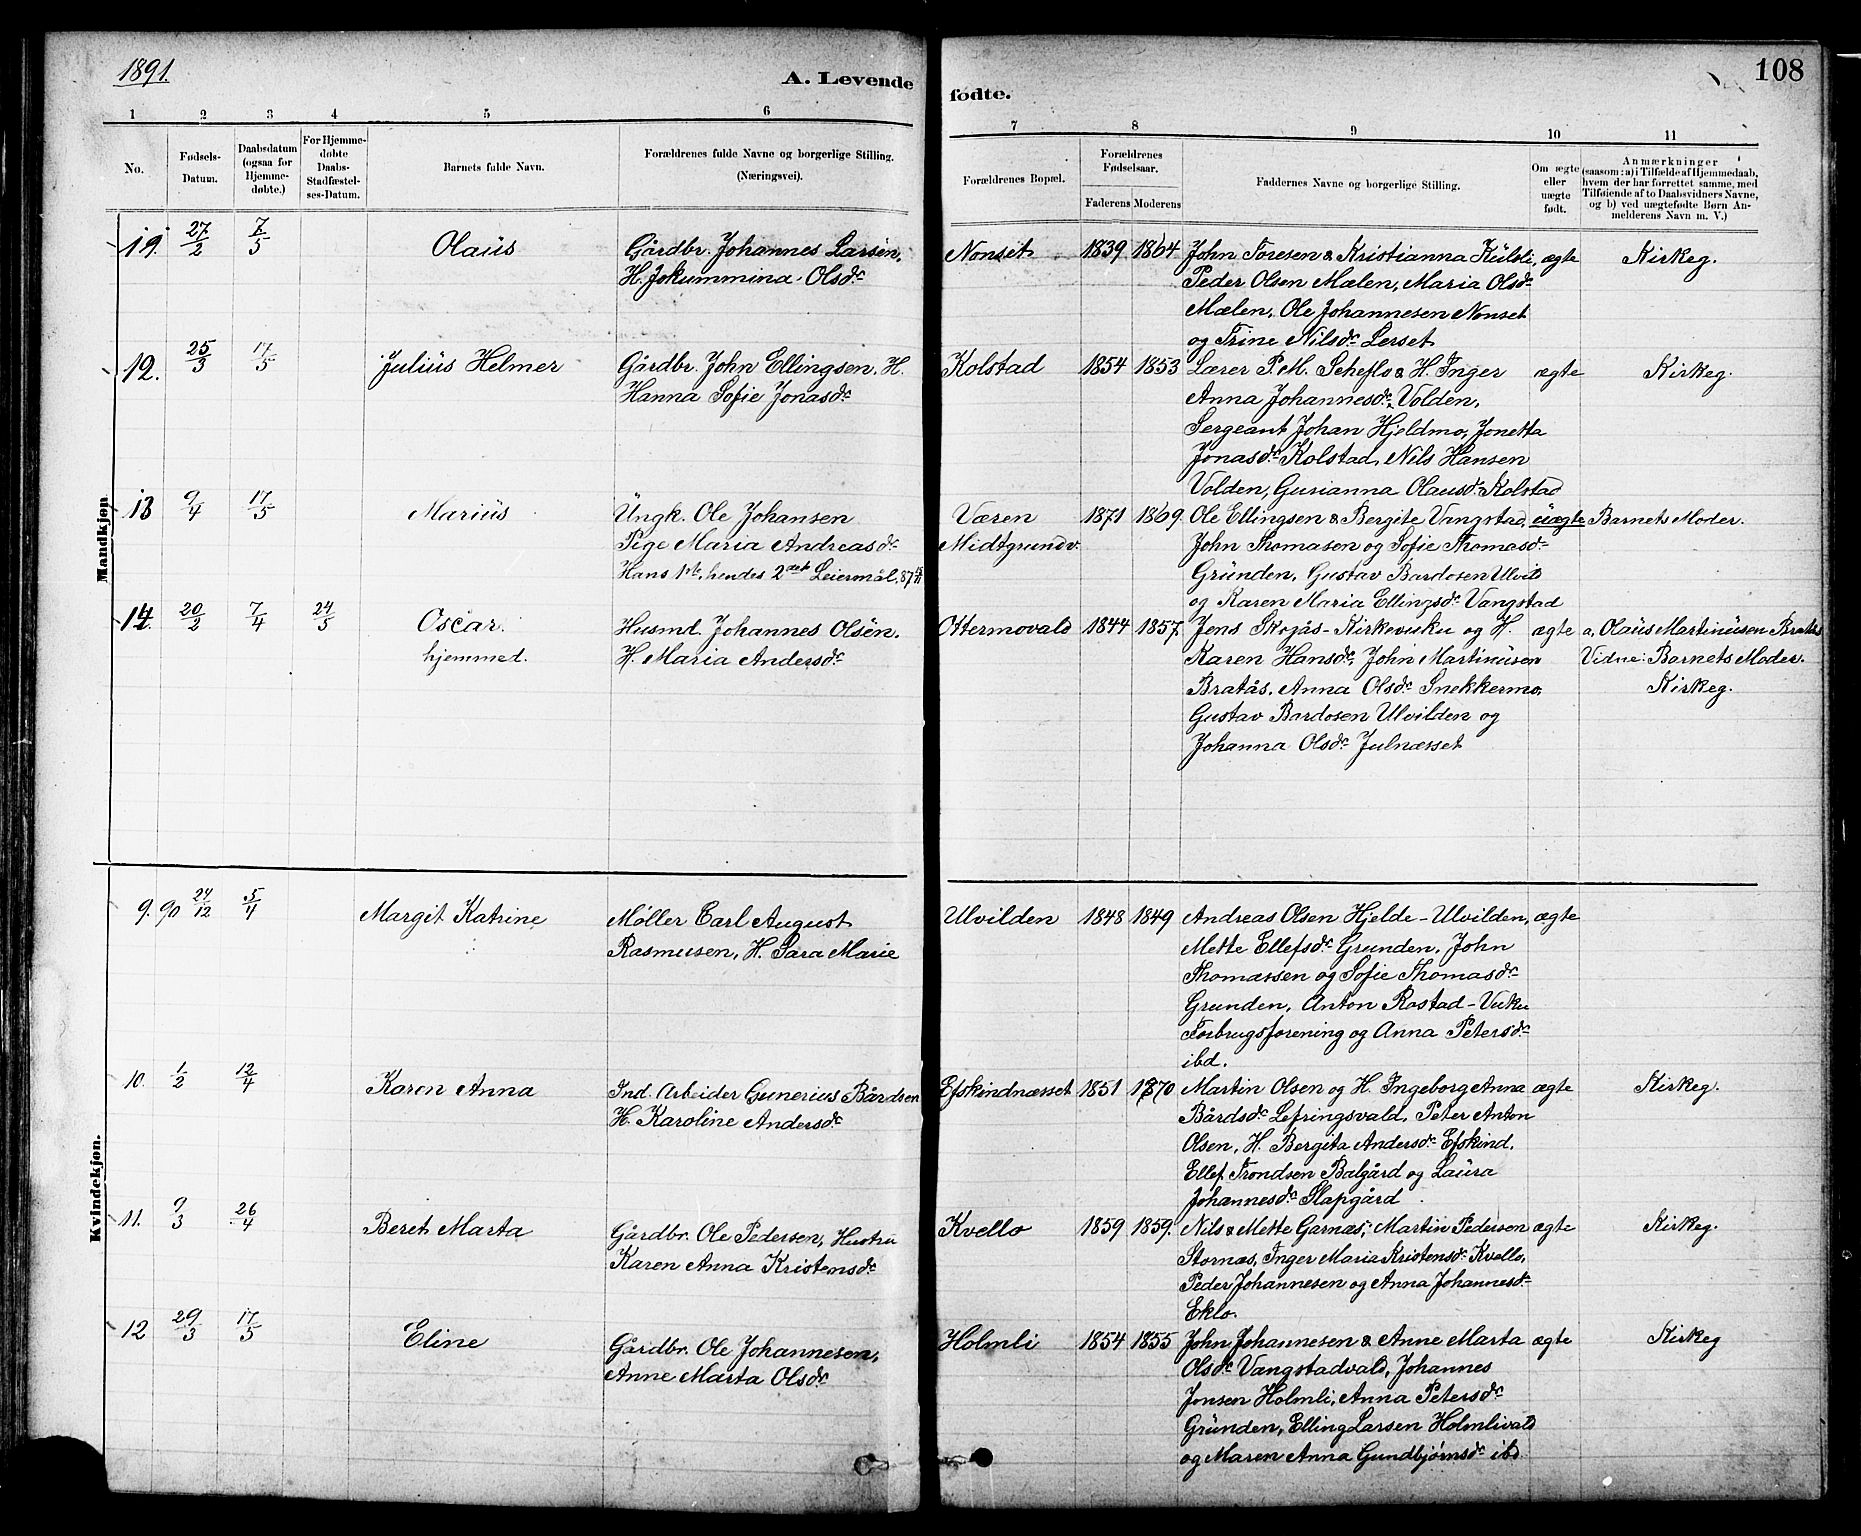 1891.
A. Levende
fødte.
108
1 2 3 4 5 6 7 8 9 10 11
No.
Fødsels-
Datum.
Daabsdatum
(ogsaa for
Hjemme-
døbte.)
For Hjemme-
døbte
Daabs-
Stadfæstel-
ses-Datum.
Barnets fulde Navn.
Forældrenes fulde Navne og borgerlige Stilling.
(Næringsvei).
Forældrenes Bopæl.
Forældrenes
Fødselsaar.
Faderens Moderens
Faddernes Navne og borgerlige Stilling.
Om ægte
eller
uægte
født.
Anmærkninger
(saasom: a) i Tilfælde af Hjemmedaab,
hvem der har forrettet samme, med
Tilføiende af to Daabsvidners Navne,
og b) ved uægtefødte Børn An-
melderens Navn m. V.)
Mandkjøn
27/2 7/5 Olaüs
Gårdbr. Johannes Larsen,
H. Jokummina Olsdr
Nonset 1839 1864
John Toresen & Kristianna Külsli,
Peder Olsen Mælen, Maria Olsdr
Mælen, Ole Johannesen Nonset
og Trine Nilsdr Lerset
ægte Kirkeg.
12. 25/3 17/5 Juliüs Helmer
Gårdbr. John Ellingsen, H.
Hanna Sofie Jonasdr
Kolstad 1854 1853
Lærer P. M. Scheflo & H. Inger
Anna Johannesdr Volden,
Sergeant Johan Hjeldmo, Jonetta
Jonasdr Kolstad, Nils Hansen
Volden, Gurianna Olausdr Kolstad
ægte Kirkeg.
13 9/4 17/5 Mariüs
Üngk. Ole Johansen
Pige Maria Andreasdr
Hans 1ste, hendes 2det Leiermål, 87
Væren
Midtgrundv.
1871 1869
Ole Ellingsen & Bergite Vangstad,
John Thomasen og Sofie Thomasdr
Gründen, Gustav Bardosen Ulvild
og Karen Maria Ellingsdr Vangstad
üægte Barnets Moder.
14. 20/2 7/4 24/5 Oscar.
hjemmed.
Husmd. Johannes Olsen,
H. Maria Andersdr
Ottermovald 1844 1857
Jens Skojås-Kirkevuku og H.
Karen Hansdr, John Martinüsen
Bratås, Anna Olsdr Snekkermo,
Gustav Bardosen Ulvilden og
Johanna Olsdr Julnæsset
ægte a, Olaüs Martinüsen Bratås
Vidne: Barnets Moder.
Kirkeg.
Kvindekjøn.
9. 90 24/12 5/4 Margit Katrine
Møller Carl August
Rasmusen, H. Sara Marie
Ulvilden 1848 1849
Andreas Olsen Hjelde-Ulvilden,
Mette Ellefsdr Grunden, John
Thomassen og Sofie Thomasdr
Grunden, Anton Rostad-Vuku
Forbrugsforening og Anna Petersdr
ibd.
ægte
10. 1/2 12/4 Karen Anna
Ind. Arbeider Gunerius Bårdsen
H. Karoline Andersdr
Efskindnæsset 1851 1870
Martin Olsen og H. Ingeborg Anna
Bårdsdr Lefringsvald, Peter Anton
Olsen, H. Bergita Andersdr Efskind,
Ellef Trondsen Balgård og Laüra
Johannesdr Slapgård
ægte Kirkeg.
11. 9/3 26/4 Beret Marta
Gårdbr. Ole Pedersen, Hustru
Karen Anna Kristensdr
Kvello 1859 1859.
Nils & Mette Garnæs, Martin Pedersen
Stornæs, Inger Maria Kristensdr Kvello,
Peder Johannesen og Anna Johannesdr
Eklo.
ægte Kirkeg.
12 29/3 17/5 Eline
Gårdbr. Ole Johannesen,
Anne Marta Olsdr
Holmli 1854 1855
John Johannesen & Anne Marta
Olsdr Vangstadvald, Johannes
Jonsen Holmli, Anna Petersdr
Gründen, Elling Larsen Holmlivald
og Maren Anna Gundbjørnsdr ibd
ægte Kirkeg